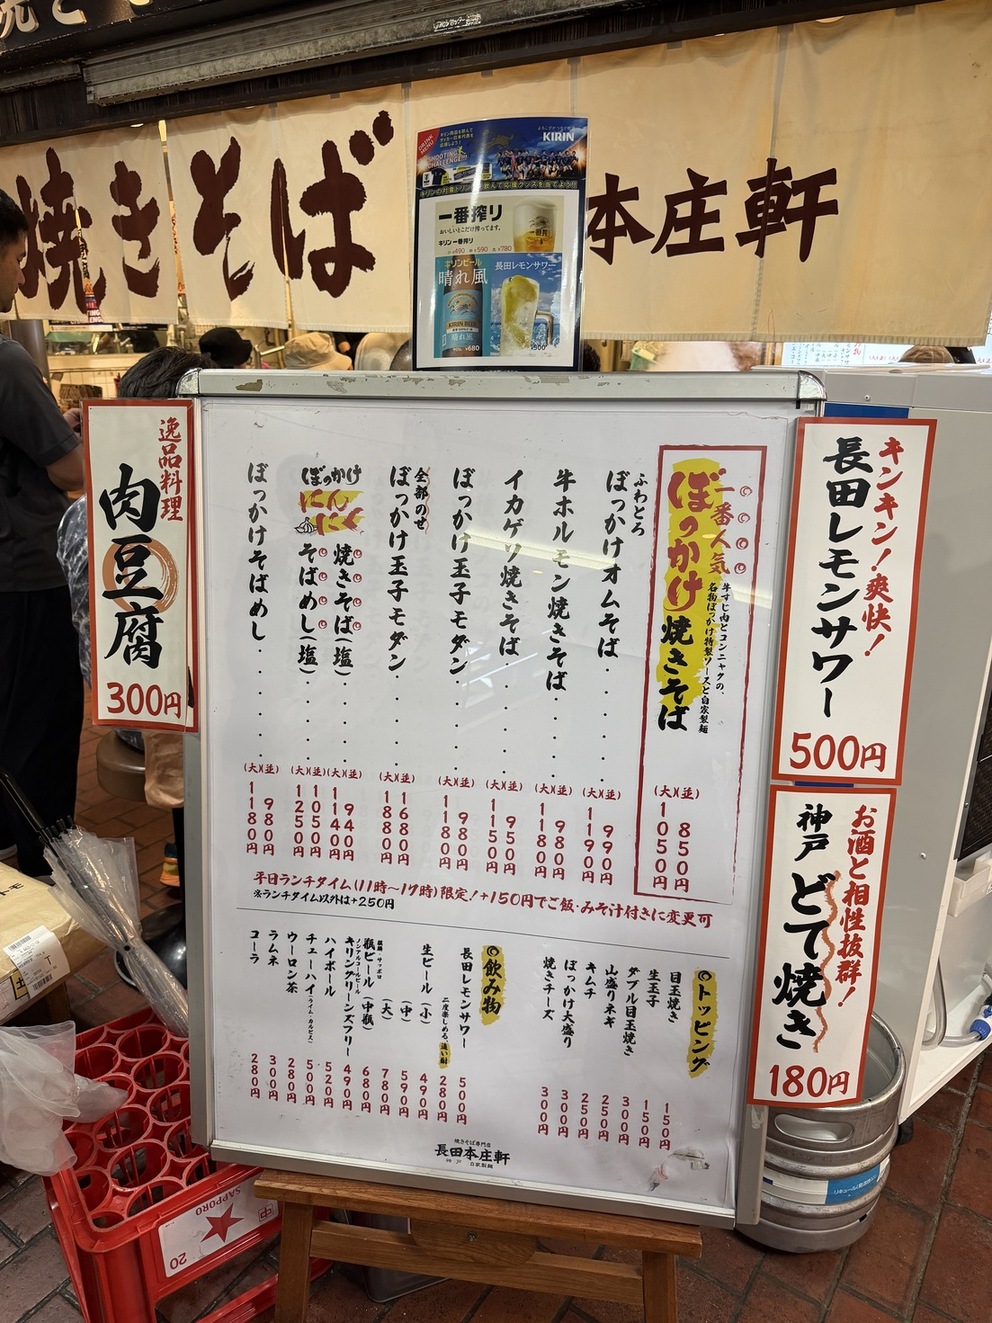 焼きそば
本庄軒
KIRIN
SHOOTING CHALLENGE!!
一番搾り
おいしいとこだけ搾ってます。
キリン一番搾り
¥490 ¥590 ¥780
キリンビール
晴れ風
長田レモンサワー
KIRIN BEER
晴れ風
¥680
¥500
逸品料理
肉豆腐
300円
キンキン!爽快!
長田レモンサワー
500円
お酒と相性抜群!
神戸 どて焼き
180円
一番人気
ぼっかけ焼きそば
牛すじ肉とコンニャクの、
名物ぼっかけ特製ソースと自家製麺
(並) 850円
(大) 1050円
ふわとろ
ぼっかけオムそば
(並) 990円
(大) 1190円
牛ホルモン焼きそば
(並) 980円
(大) 1180円
イカゲソ焼きそば
(並) 950円
(大) 1150円
ぼっかけ玉子モダン
(並) 980円
(大) 1180円
全部のせ
ぼっかけ玉子モダン
(並) 1680円
(大) 1880円
ぼっかけ
にんにく
焼きそば(塩)
(並) 940円
(大) 1140円
そばめし(塩)
(並) 1050円
(大) 1250円
ぼっかけそばめし
(並) 980円
(大) 1180円
平日ランチタイム(11時〜17時)限定!+150円でご飯・みそ汁付きに変更可
※ランチタイム以外は+250円
トッピング
目玉焼き 150円
生玉子 150円
ダブル目玉焼き 300円
山盛りネギ 250円
キムチ 250円
ぼっかけ大盛り 300円
焼きチーズ 300円
飲み物
長田レモンサワー 500円
二度楽しめる、追い酎 280円
生ビール(小) 490円
(中) 590円
(大) 780円
瓶ビール(中瓶) 680円
麒麟・サッポロ
ノンアルコールビール
キリングリーンズフリー 490円
ハイボール 520円
チューハイ(ライム・カルピス) 500円
ウーロン茶 280円
ラムネ 300円
コーラ 280円
焼きそば専門店
長田本庄軒
神戸 自家製麺
SAPPORO
中
20